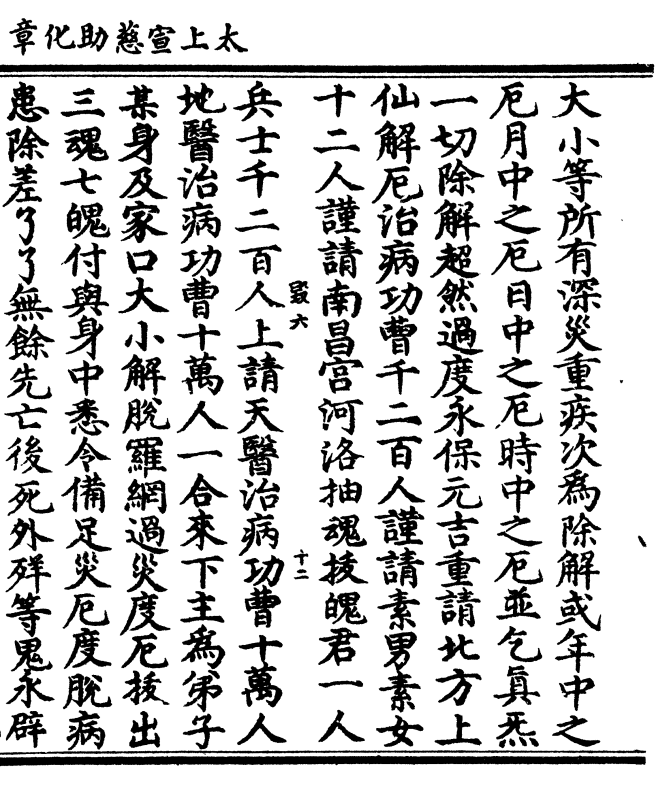 太上宣慈助化章
大小等所有深災重疾次爲除解或年中之
厄月中之厄日中之厄時中之厄並乞眞炁
一切除解超然過度永保元吉重請北方上
仙解厄治病功曹千二百人謹請素男素女
十二人謹請南昌宮河洛抽魂拔魄君一人
毀六
十二
兵士千二百人上請天醫治病功曹十萬人
地醫治病功曹十萬人一合來下主爲弟子
某身及家口大小解脫羅網過災度厄拔出
三魂七魄付與身中悉令備足災厄度脫病
患除差了了無餘先亡後死外殍等鬼永辟